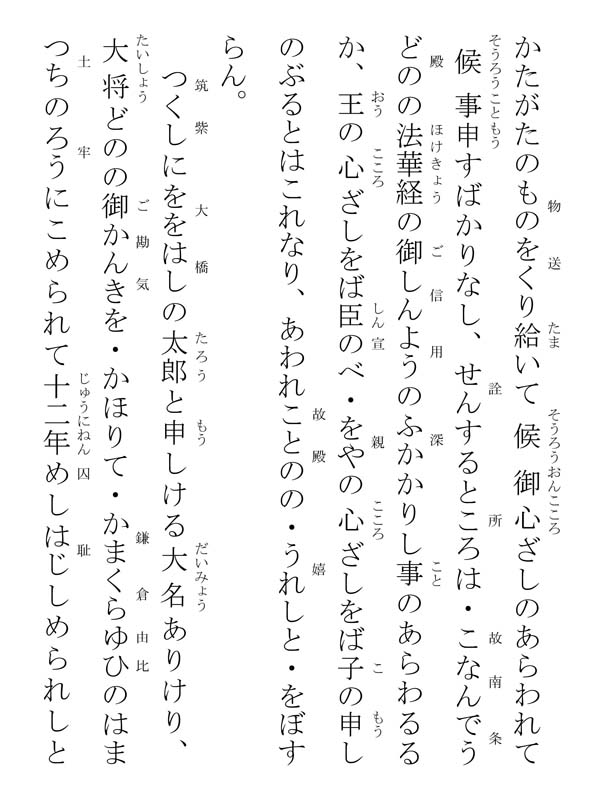 かたがたのものをくり給いて候御心ざしのあらわれて
候事申すばかりなし、せんするところは・こなんでう
どのの法華経の御しんようのふかかりし事のあらわるる
か、王の心ざしをば臣のべ・をやの心ざしをば子の申し
のぶるとはこれなり、あわれことのの・うれしと・をぼす
らん。
つくしにををはしの太郎と申しける大名ありけり、
大将どのの御かんきを・かほりて・かまくらゆひのはま
つちのろうにこめられて十二年めしはじしめられしと